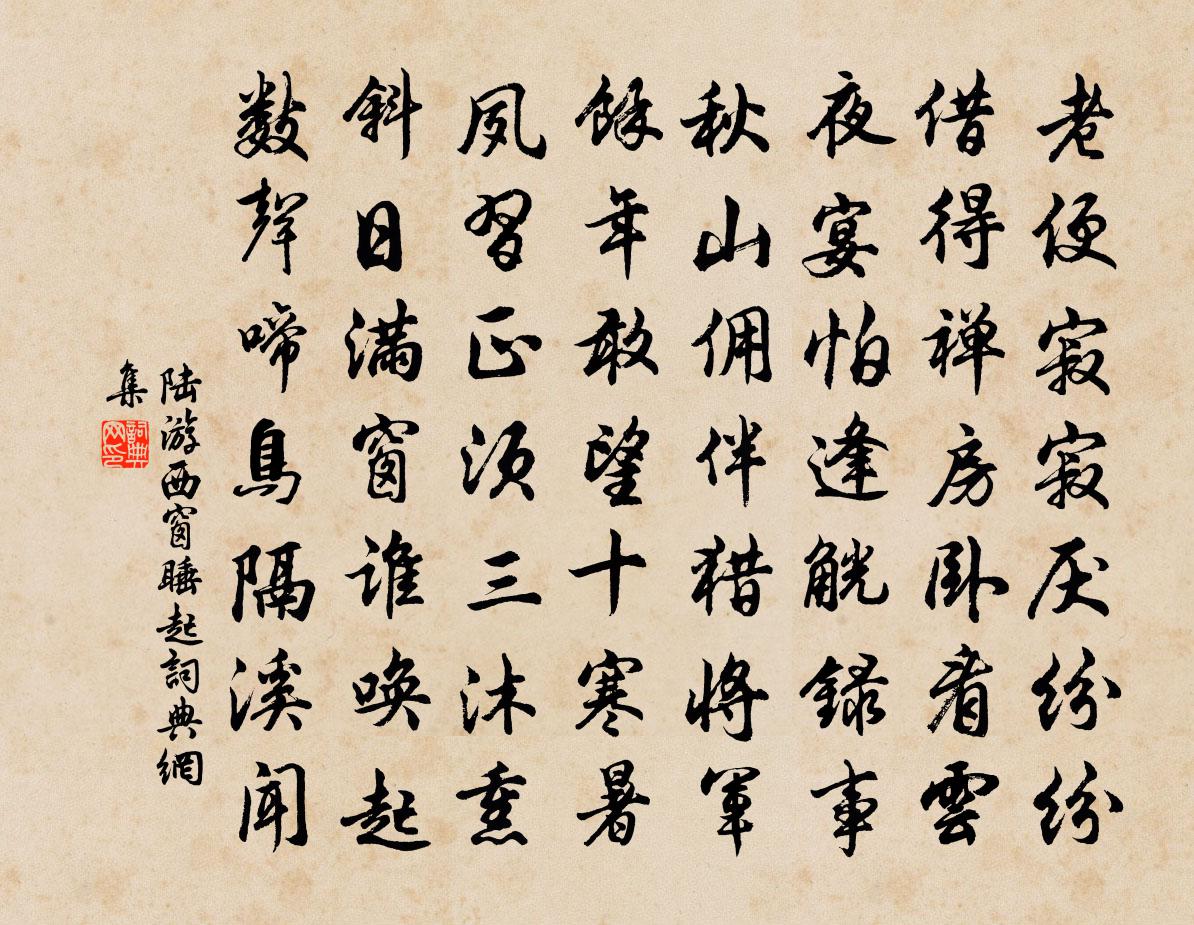 老便寂寂厌纷纷
借得禅房卧看雲
夜宴怕逢觥録事
秋山佣伴猎将軍
餘年敢望十寒暑
夙習正须三沐熏
斜日满窗谁唤起
数聲啼鳥隔溪闻
陆游西窗睡起詞典網
集
詞典
网印